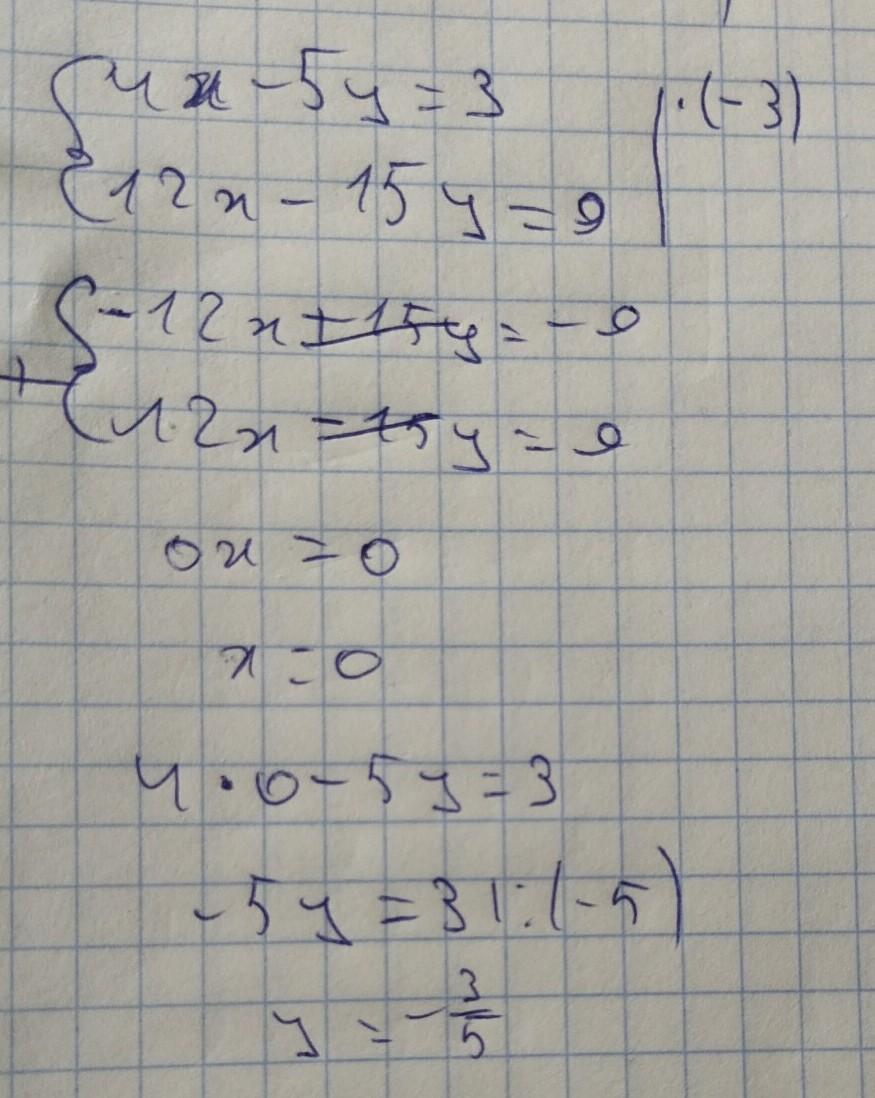 {4x - 5y = 3 | · (-3)
{12x - 15y = 9
{-12x + 15y = -9
+
{12x - 15y = 9
0x = 0
x = 0
4 · 0 - 5y = 3
-5y = 3 | : (-5)
y = -3/5